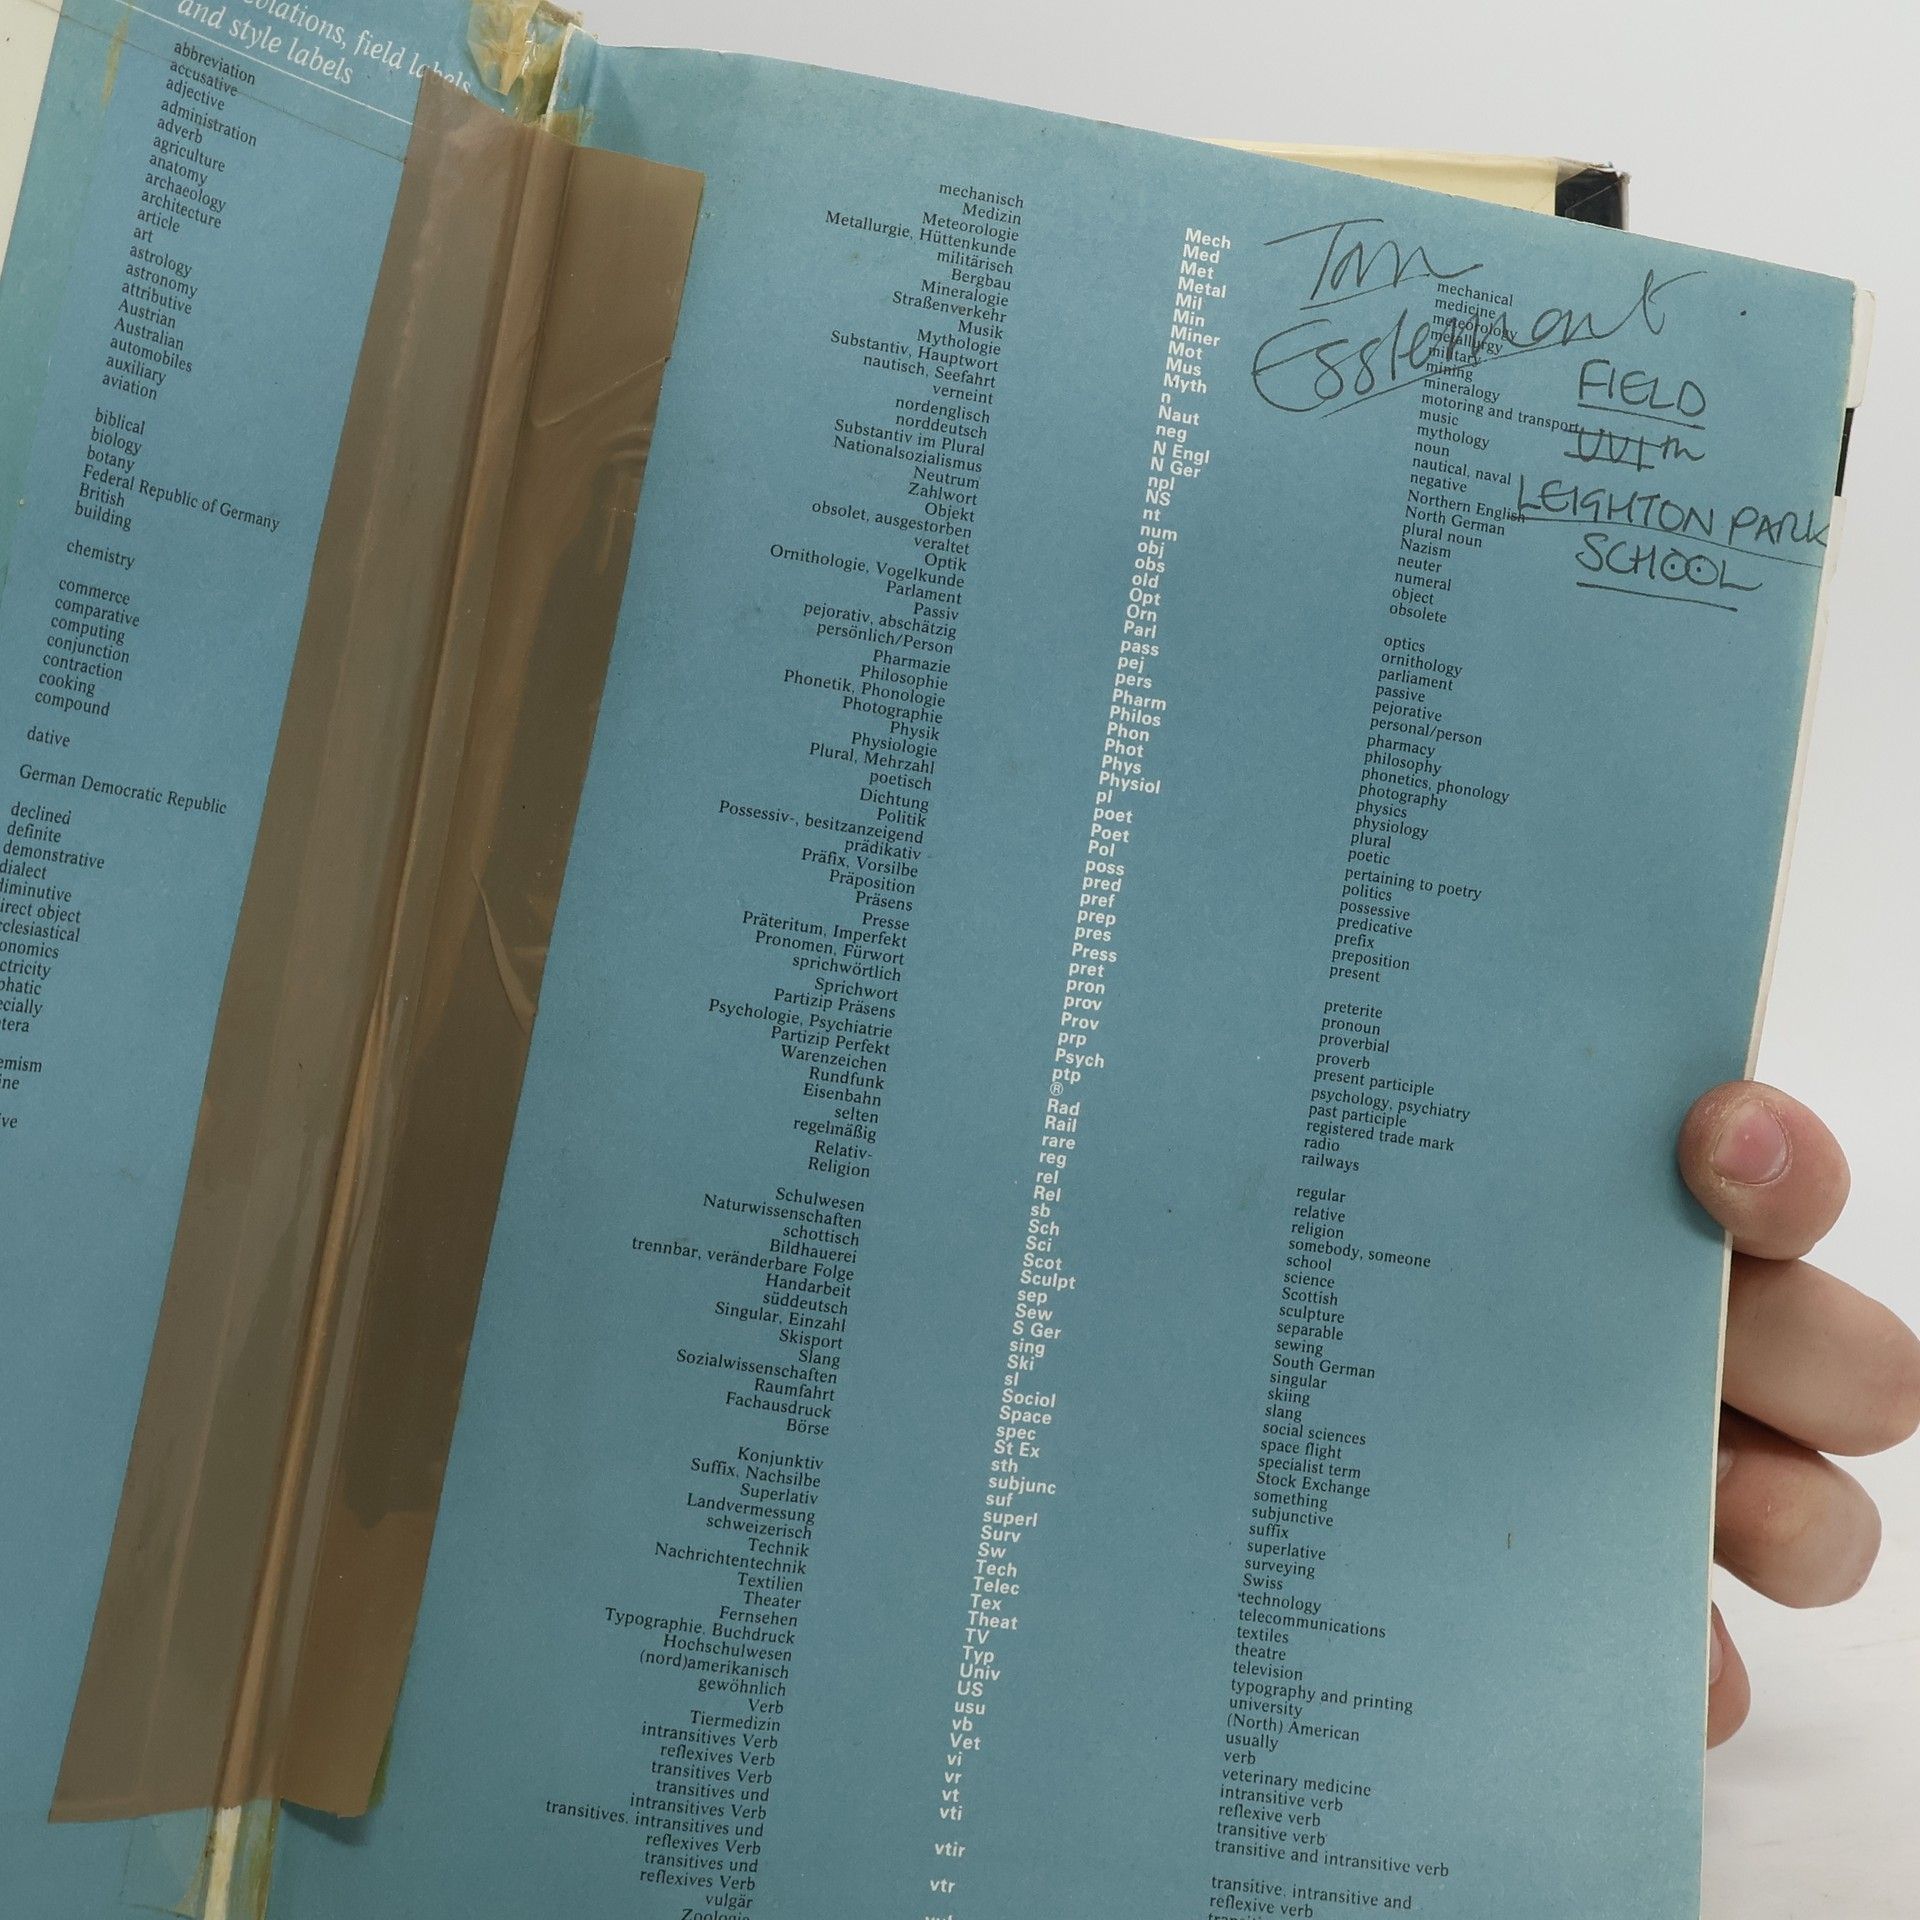 and style labels
abbreviation
accusative
adjective
administration
adverb
agriculture
anatomy
archaeology
architecture
article
art
astrology
astronomy
attributive
Austrian
Australian
automobiles
auxiliary
aviation
biblical
biology
botany
Federal Republic of Germany
British
building
chemistry
commerce
comparative
computing
conjunction
contraction
cooking
compound
dative
German Democratic Republic
declined
definite
demonstrative
dialect
mechanisch
Medizin
Meteorologie
Metallurgie, Hüttenkunde
militärisch
Bergbau
Mineralogie
Straßenverkehr
Musik
Mythologie
Substantiv, Hauptwort
nautisch, Seefahrt
verneint
nordenglisch
norddeutsch
Substantiv im Plural
Nationalsozialismus
Neutrum
Zahlwort
Objekt
obsolet, ausgestorben
veraltet
Optik
Ornithologie, Vogelkunde
Parlament
Passiv
pejorativ, abschätzig
persönlich/Person
Pharmazie
Philosophie
Phonetik, Phonologie
Photographie
Physik
Physiologie
Plural, Mehrzahl
poetisch
Dichtung
Politik
Possessiv-, besitzanzeigend
prädikativ
Präfix, Vorsilbe
Präposition
Präsens
Presse
Präteritum, Imperfekt
Pronomen, Fürwort
sprichwörtlich
Sprichwort
Partizip Präsens
Psychologie, Psychiatrie
Partizip Perfekt
Warenzeichen
Rundfunk
Eisenbahn
selten
regelmäßig
Relativ-
Religion
Schulwesen
Naturwissenschaften
schottisch
Bildhauerei
trennbar, veränderbare Folge
Handarbeit
süddeutsch
Singular, Einzahl
Skisport
Slang
Sozialwissenschaften
Raumfahrt
Fachausdruck
Börse
Konjunktiv
Suffix, Nachsilbe
Superlativ
Landvermessung
schweizerisch
Technik
Nachrichtentechnik
Textilien
Theater
Fernsehen
Typographie, Buchdruck
Hochschulwesen
(nord)amerikanisch
gewöhnlich
Verb
Tiermedizin
intransitives Verb
reflexives Verb
transitives Verb
transitives und
intransitives Verb
transitives, intransitives und
reflexives Verb
transitives und
reflexives Verb
vulgär
Zoologie
Mech
Med
Met
Metal
Mil
Min
Miner
Mot
Mus
Myth
n
Naut
neg
N Engl
N Ger
npl
NS
nt
num
obj
obs
old
Opt
Orn
Parl
pass
pej
pers
Pharm
Philos
Phon
Phot
Phys
Physiol
pl
poet
Poet
Pol
poss
pred
pref
prep
pres
Press
pret
pron
prov
Prov
prp
Psych
ptp
®
Rad
Rail
rare
reg
rel
Rel
sb
Sch
Sci
Scot
Sculpt
sep
Sew
S Ger
sing
Ski
sl
Sociol
Space
spec
St Ex
sth
subjunc
suf
superl
Surv
Sw
Tech
Telec
Tex
Theat
TV
Typ
Univ
US
usu
vb
Vet
vi
vr
vt
vti
vtir
vtr
mechanical
medicine
meteorology
metallurgy
military
mining
mineralogy
motoring and transport
music
mythology
noun
nautical, naval
negative
Northern English
North German
plural noun
Nazism
neuter
numeral
object
obsolete
optics
ornithology
parliament
passive
pejorative
personal/person
pharmacy
philosophy
phonetics, phonology
photography
physics
physiology
plural
poetic
pertaining to poetry
politics
possessive
predicative
prefix
preposition
present
preterite
pronoun
proverbial
proverb
present participle
psychology, psychiatry
past participle
registered trade mark
radio
railways
regular
relative
religion
somebody, someone
school
science
Scottish
sculpture
separable
sewing
South German
singular
skiing
slang
social sciences
space flight
specialist term
Stock Exchange
something
subjunctive
suffix
superlative
surveying
Swiss
technology
telecommunications
textiles
theatre
television
typography and printing
university
(North) American
usually
verb
veterinary medicine
intransitive verb
reflexive verb
transitive verb
transitive and intransitive verb
transitive, intransitive and
reflexive verb
Esslemont
FIELD
LEIGHTON PARK
SCHOOL